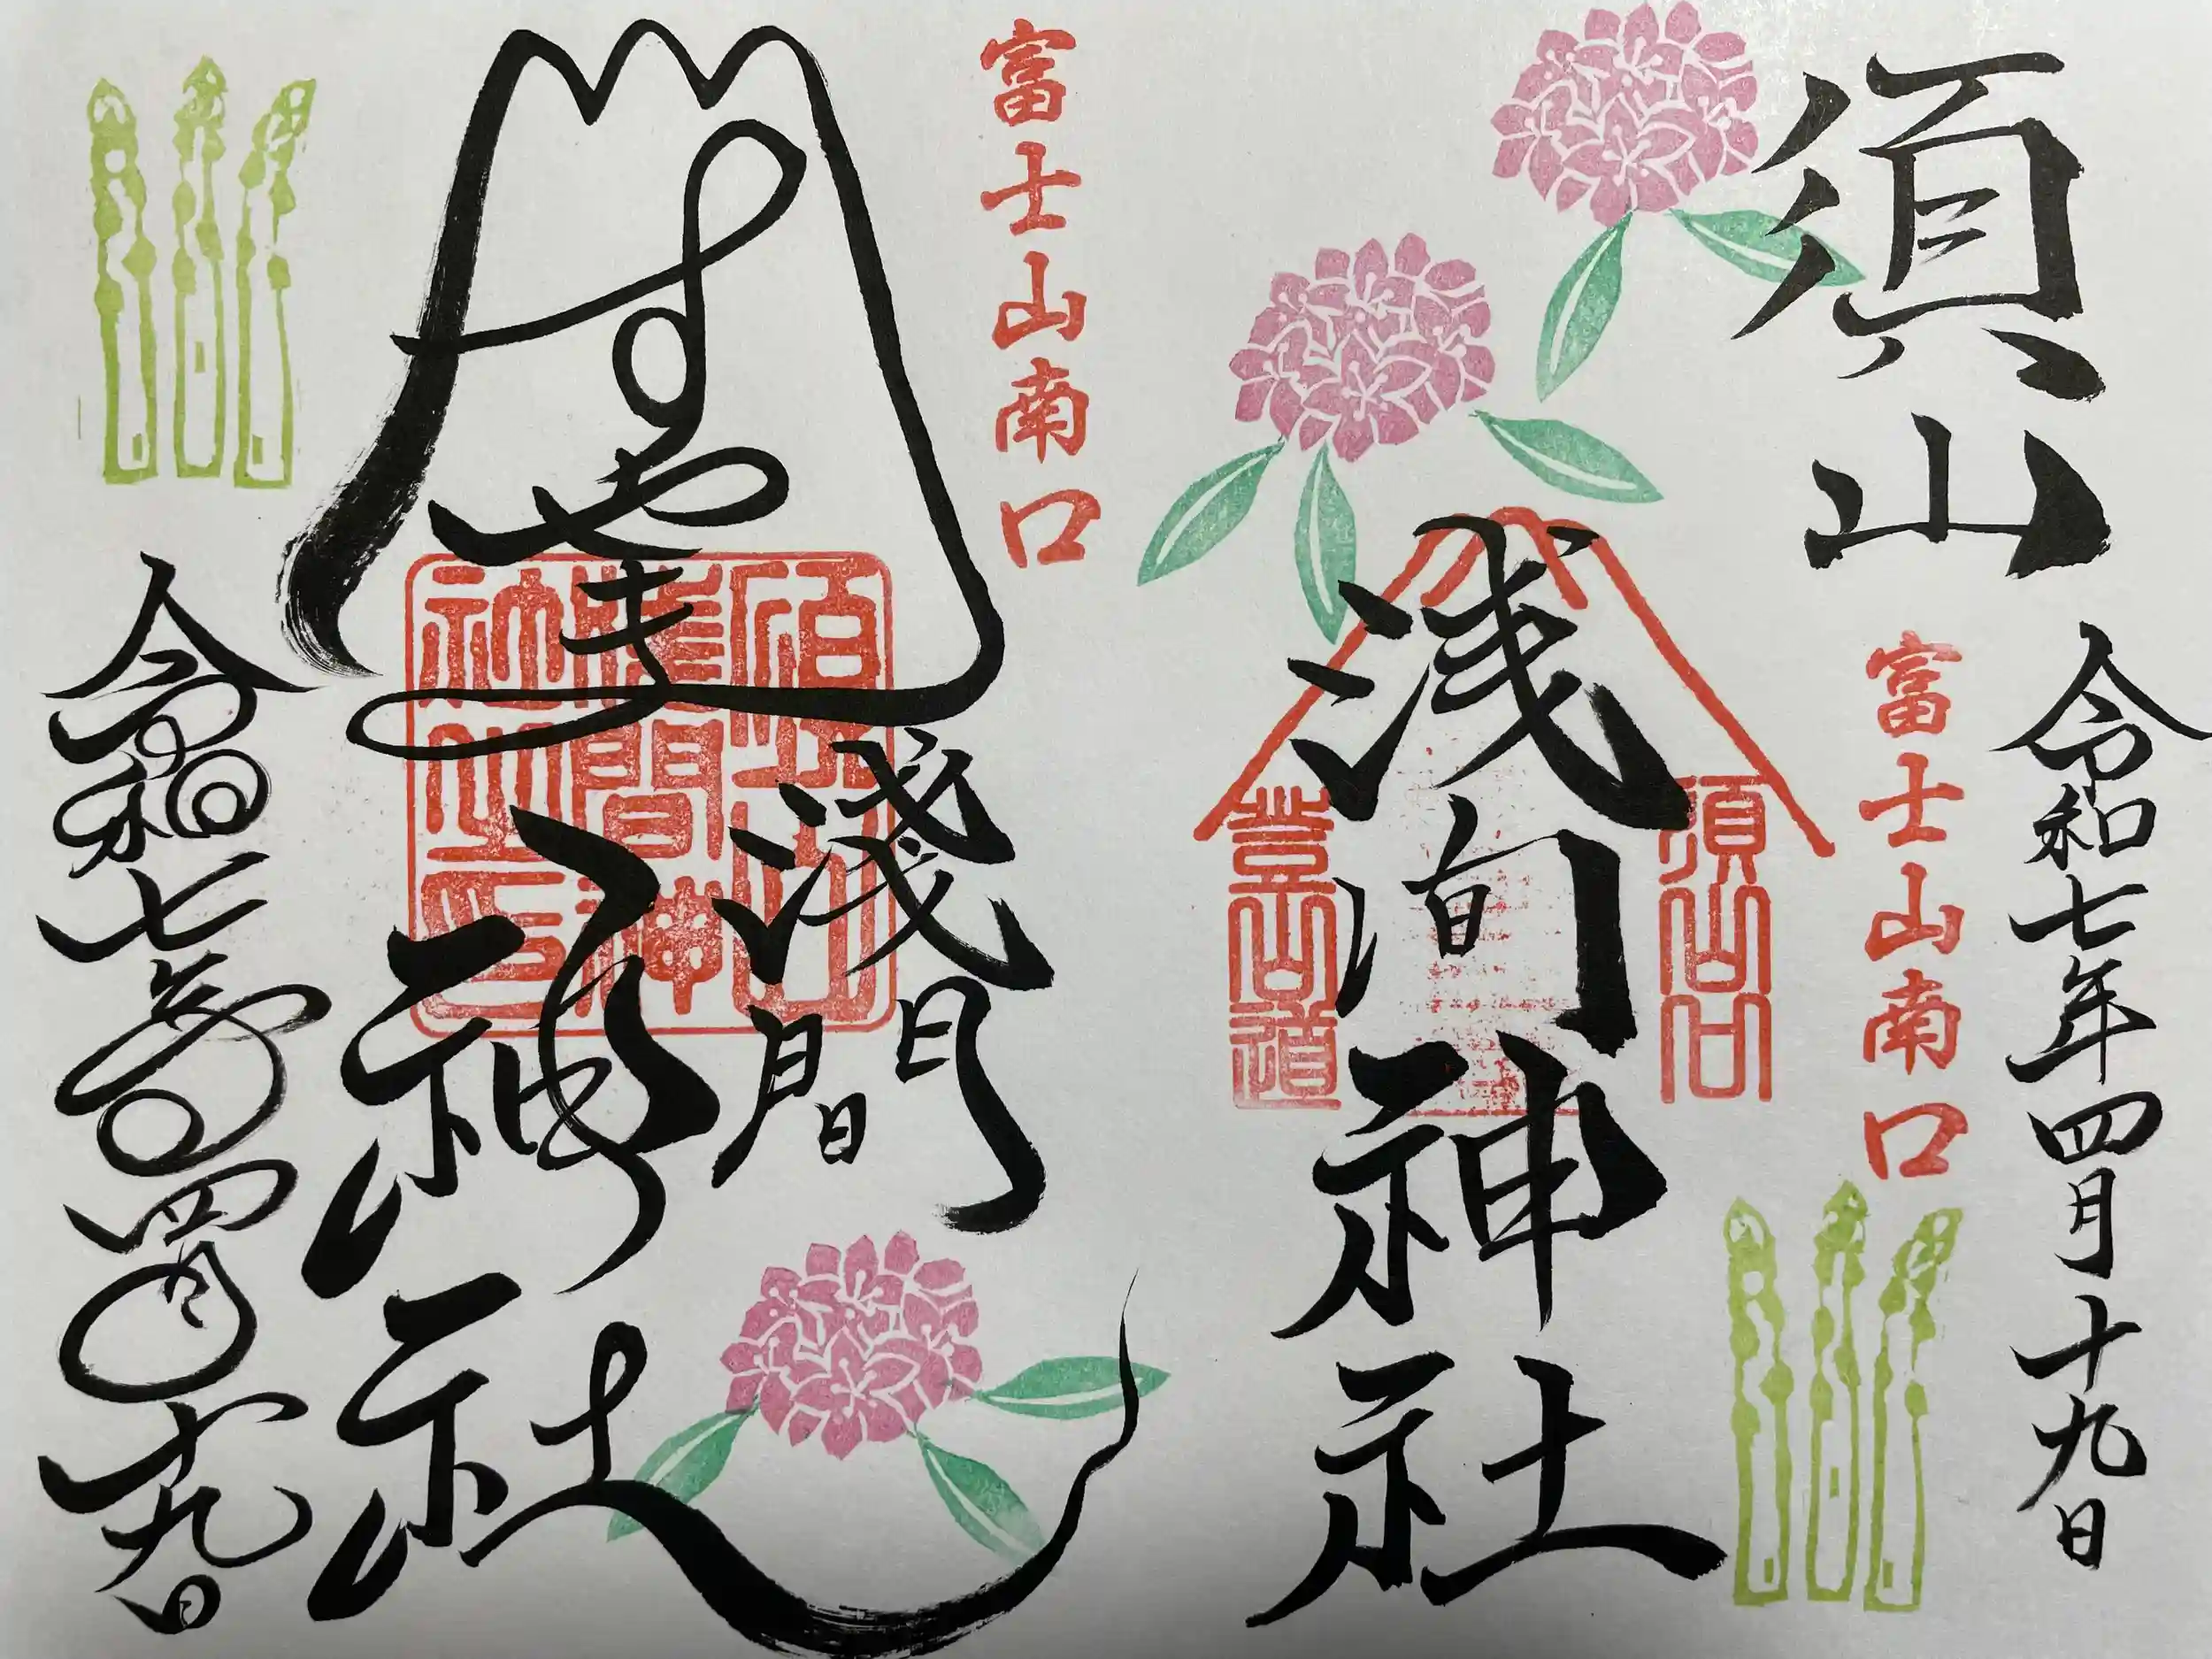 須山
令和七年四月十九日
富士山南口
浅間神社
須山口
登山道
富士山南口
すやま
淺間
神社
須山
淺間神
社之印
令和七年四月十九日